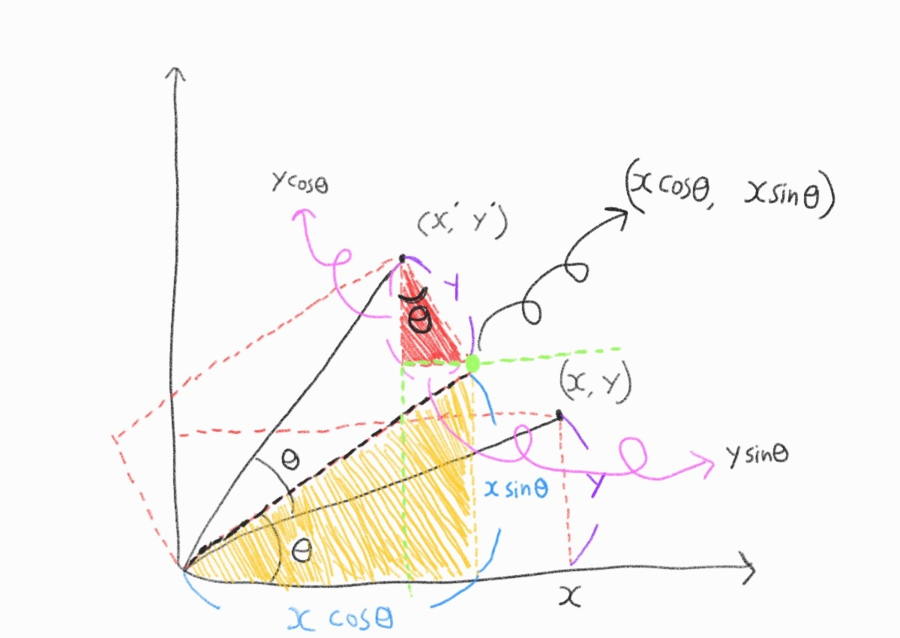 ycosθ
(x cosθ, x sinθ)
(x', y')
y
θ
(x, y)
θ
y sinθ
x sinθ
y
θ
x
x cosθ